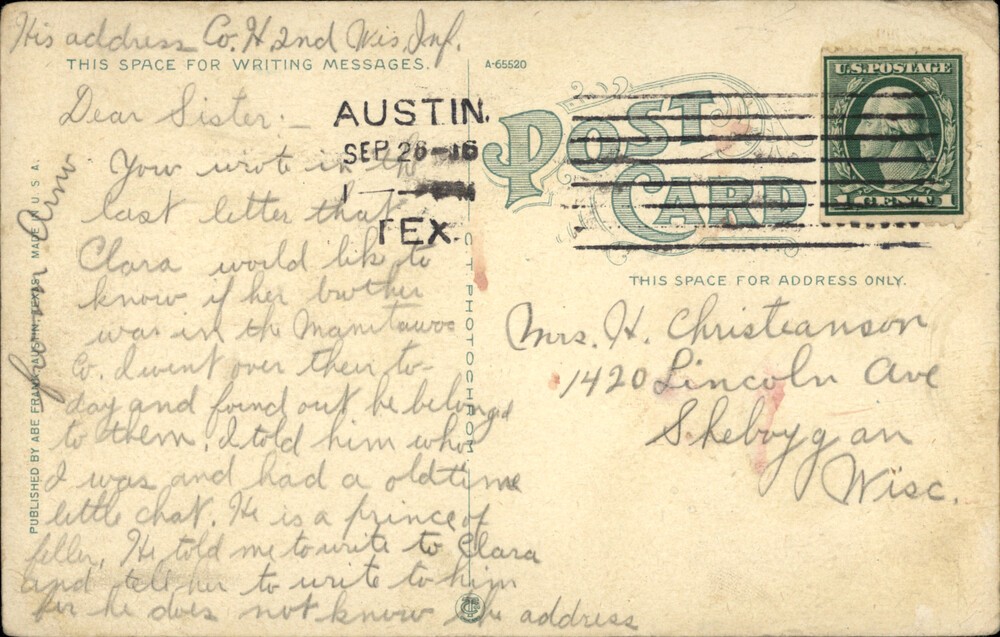 His address Co. H. 2nd Wis. Inf.
THIS SPACE FOR WRITING MESSAGES.
A-65520
Dear Sister:-
You wrote in the
last letter that
Clara would like to
know if her brother
was in the Manitowoc
Co. I went over their to-
day and found out he belonged
to them. I told him who
I was and had a oldtime
little chat. He is a prince of
feller. He told me to write to Clara
and tell her to write to him
for he does not know the address
from
PUBLISHED BY ABE FRANK, AUSTIN, TEXAS. MADE IN U.S.A.
C T PHOTOCHROM
AUSTIN.
SEP 26-16
1
TEX.
POST
CARD
U.S. POSTAGE
1 CENT 1
THIS SPACE FOR ADDRESS ONLY.
Mrs. H. Christeanson
1420 Lincoln Ave
Sheboygan
Wisc.